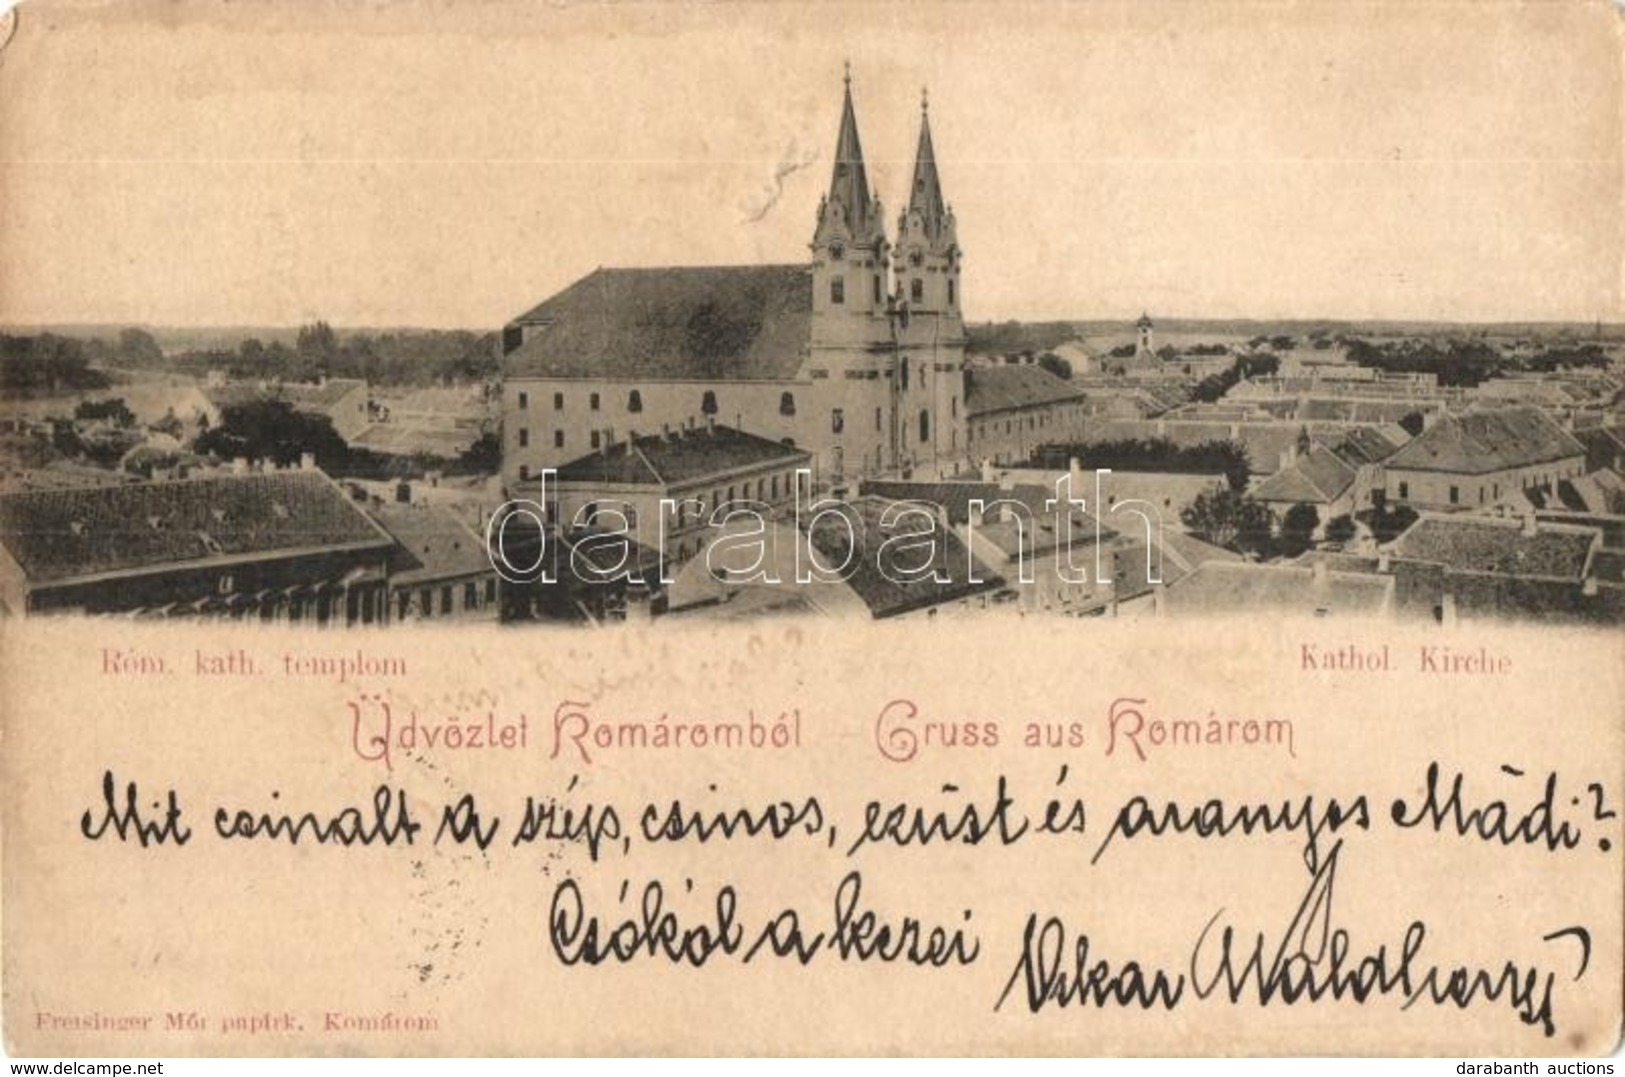 darabanth
Róm. kath. templom
Kathol. Kirche
Üdvözlet Komáromból Gruss aus Komárom
Mit csinalt a szép, csinos, ezüst és aranyos Mādi?
Csókól a kezei
Oskar
Freisinger Mór papírk. Komárom
darabanth auctions
https://www.delcampe.net